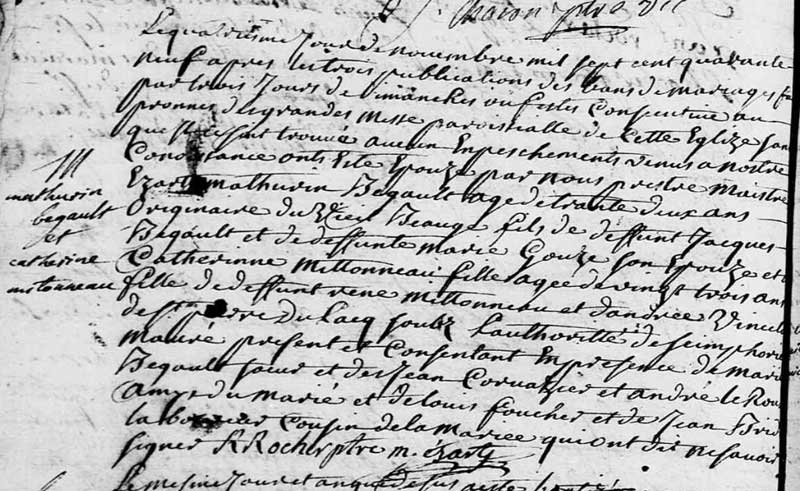 Le quatriesme Jour de novembre mil sept cent quarante
neuf apres les trois publications des bans de mariages
par trois Jours de dimanches ou festes Consecutive au
pronnes des grandes Messe paroissialle de Cette Eglize san
que se soit trouvé aucun Empeschements venus a nostre
Conoissance onts Esté Epouzé par nous prestre Maistre
Ezart mathurin Begault agé de trante deux ans
Originaire du Vieux Beaugé fils de deffunt Jacques
Begault et de deffunte marie Gouze son Epouze et
Catherinne Millonneau fille agee de vingt trois ans
fille de deffunt rené Millonneau et dandree
de st pierre du Lacq soubz Lauthorité de simphor
Mauré present et Consentant En presence de Marie
Begault sœur et de Jean et andré le Roux
amys du marié et de louis foucher et de Jean
la Cousin de la mariee qui ont dit ne savoir
signer R Rocher ptre m. Ezart
Le mesme Jour et an que desus
M
mathurin
begault
et
catherine
milonneau